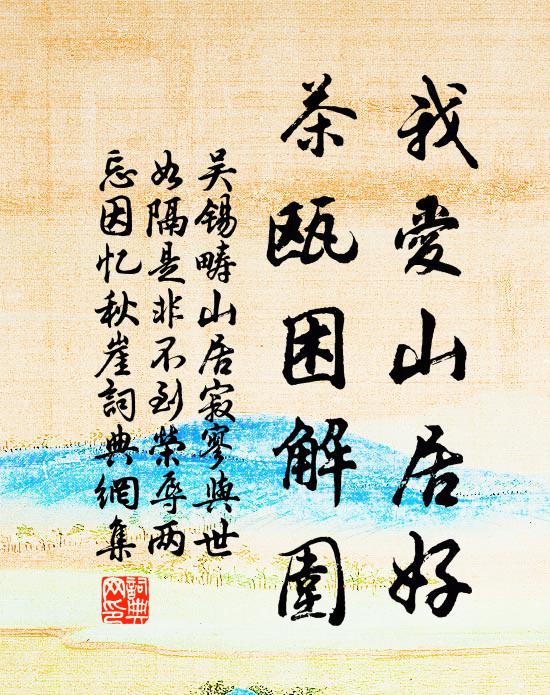 我愛山居好
茶甌困解圍
吴錫疇山居寂寥與世
如隔是非不到榮辱两
忘因忆秋崖詞典網集
詞典